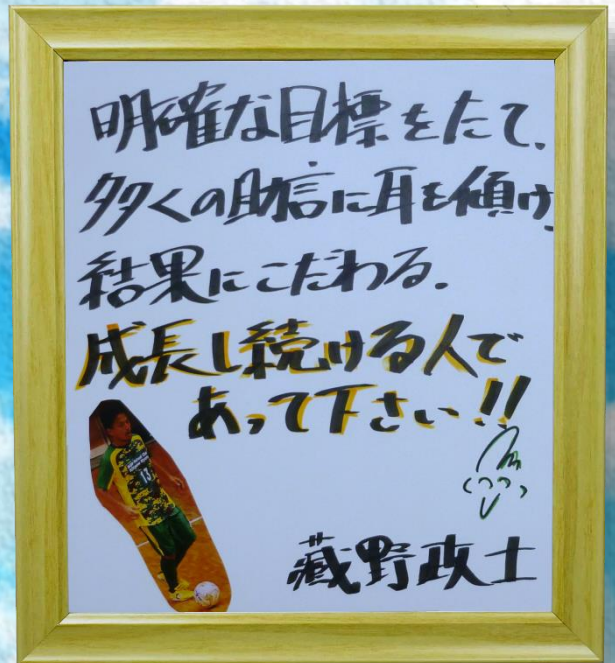 明確な目標をたて、
多くの助言に耳を傾け、
結果にこだわる.
成長し続ける人で
あって下さい!!
13
蔵野政士